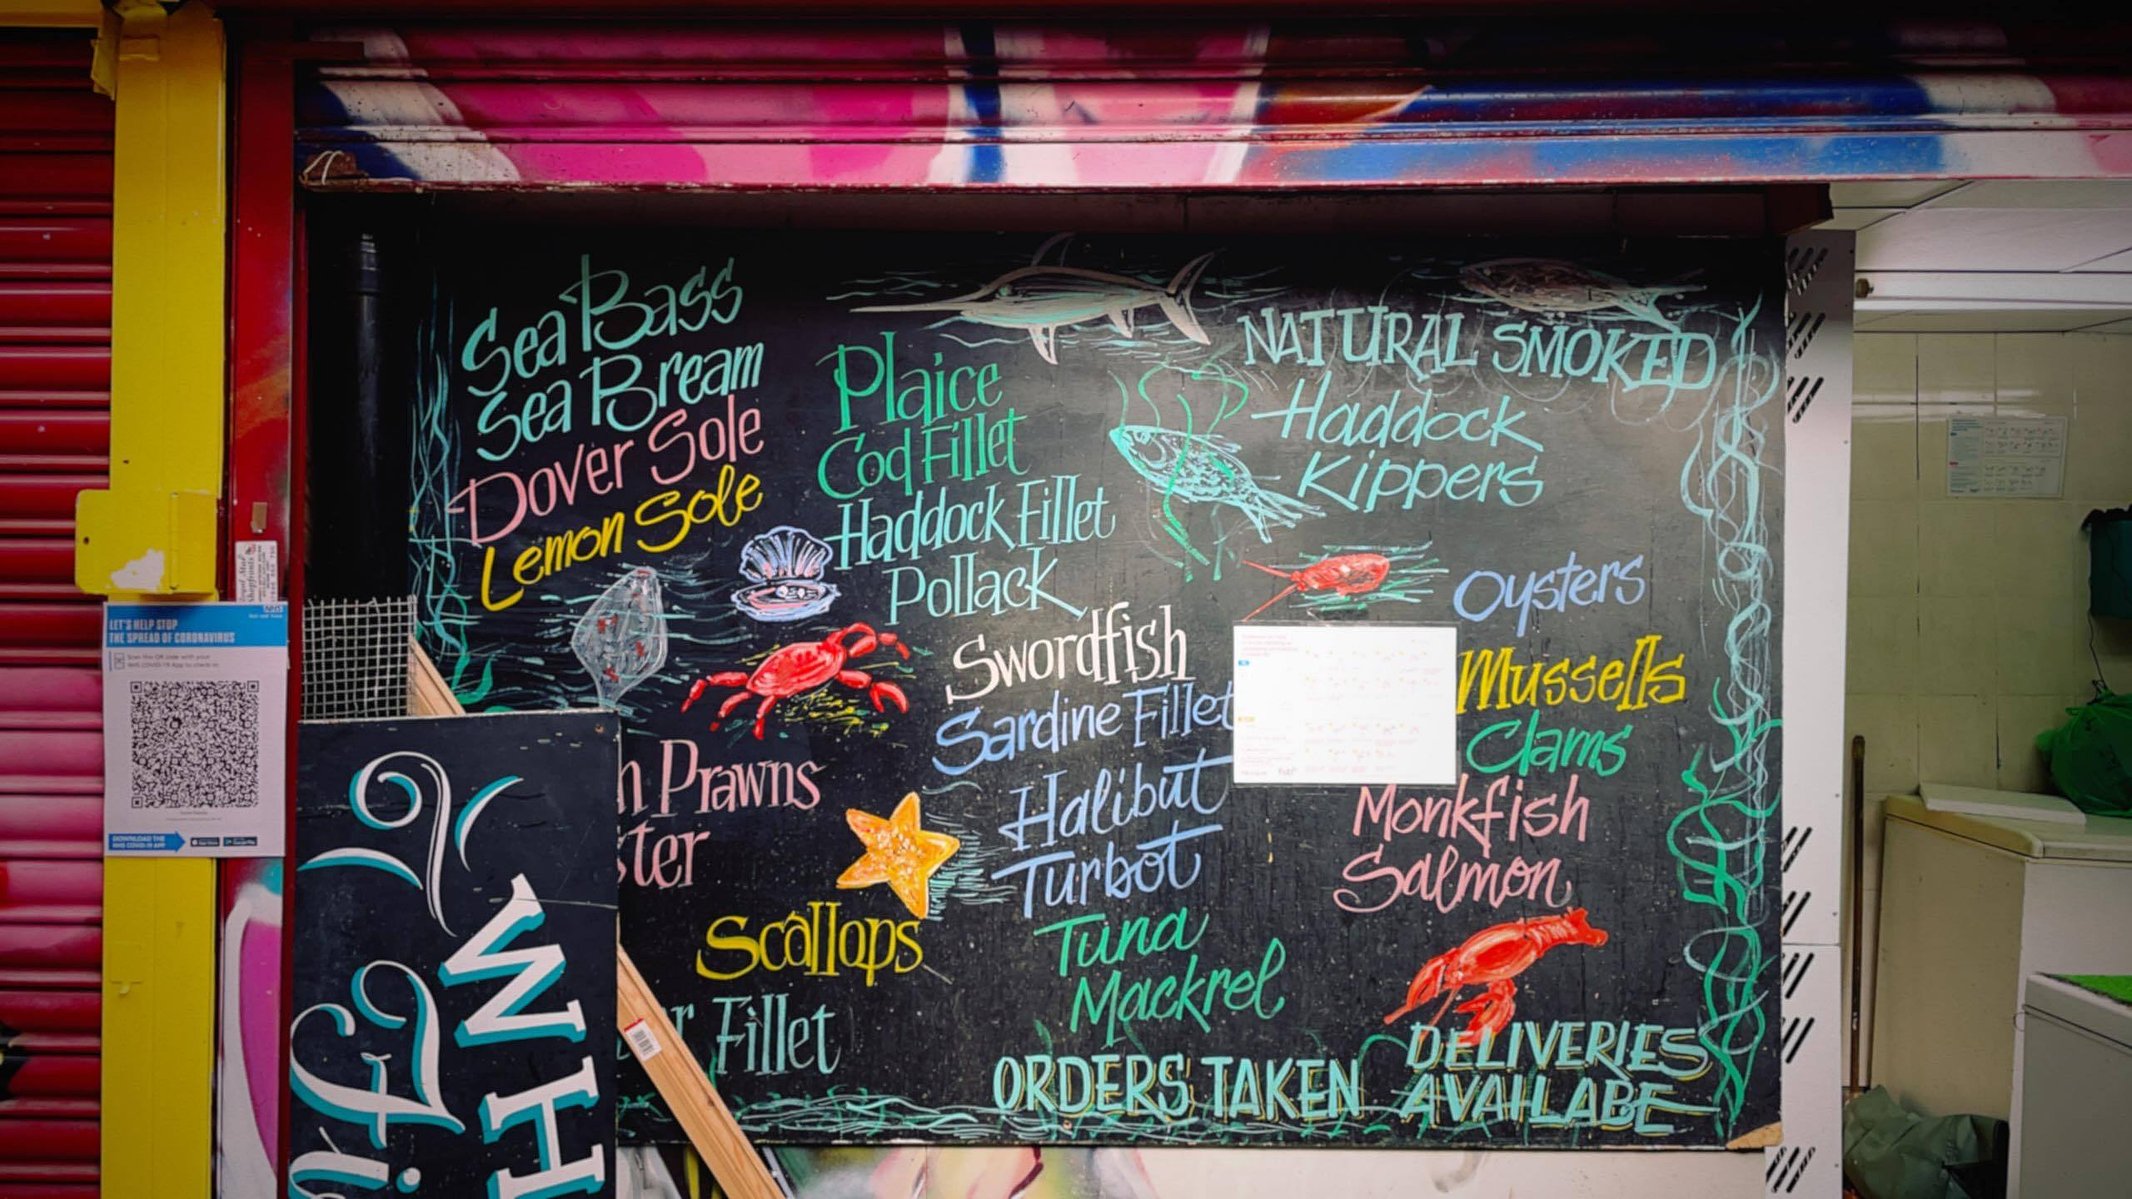 Sea Bass
Sea Bream
Dover Sole
Lemon Sole
Plaice
Cod Fillet
Haddock Fillet
Pollack
Swordfish
Sardine Fillet
Halibut
Turbot
Tuna
Mackrel
NATURAL SMOKED
Haddock
Kippers
Oysters
Mussells
Clams
Monkfish
Salmon
Prawns
Scallops
Fillet
ORDERS TAKEN
DELIVERIES
AVAILABE
WH
NHS
LET'S HELP STOP
THE SPREAD OF CORONAVIRUS
Scan the QR code with your
NHS COVID-19 App to check in
DOWNLOAD THE
NHS COVID-19 APP